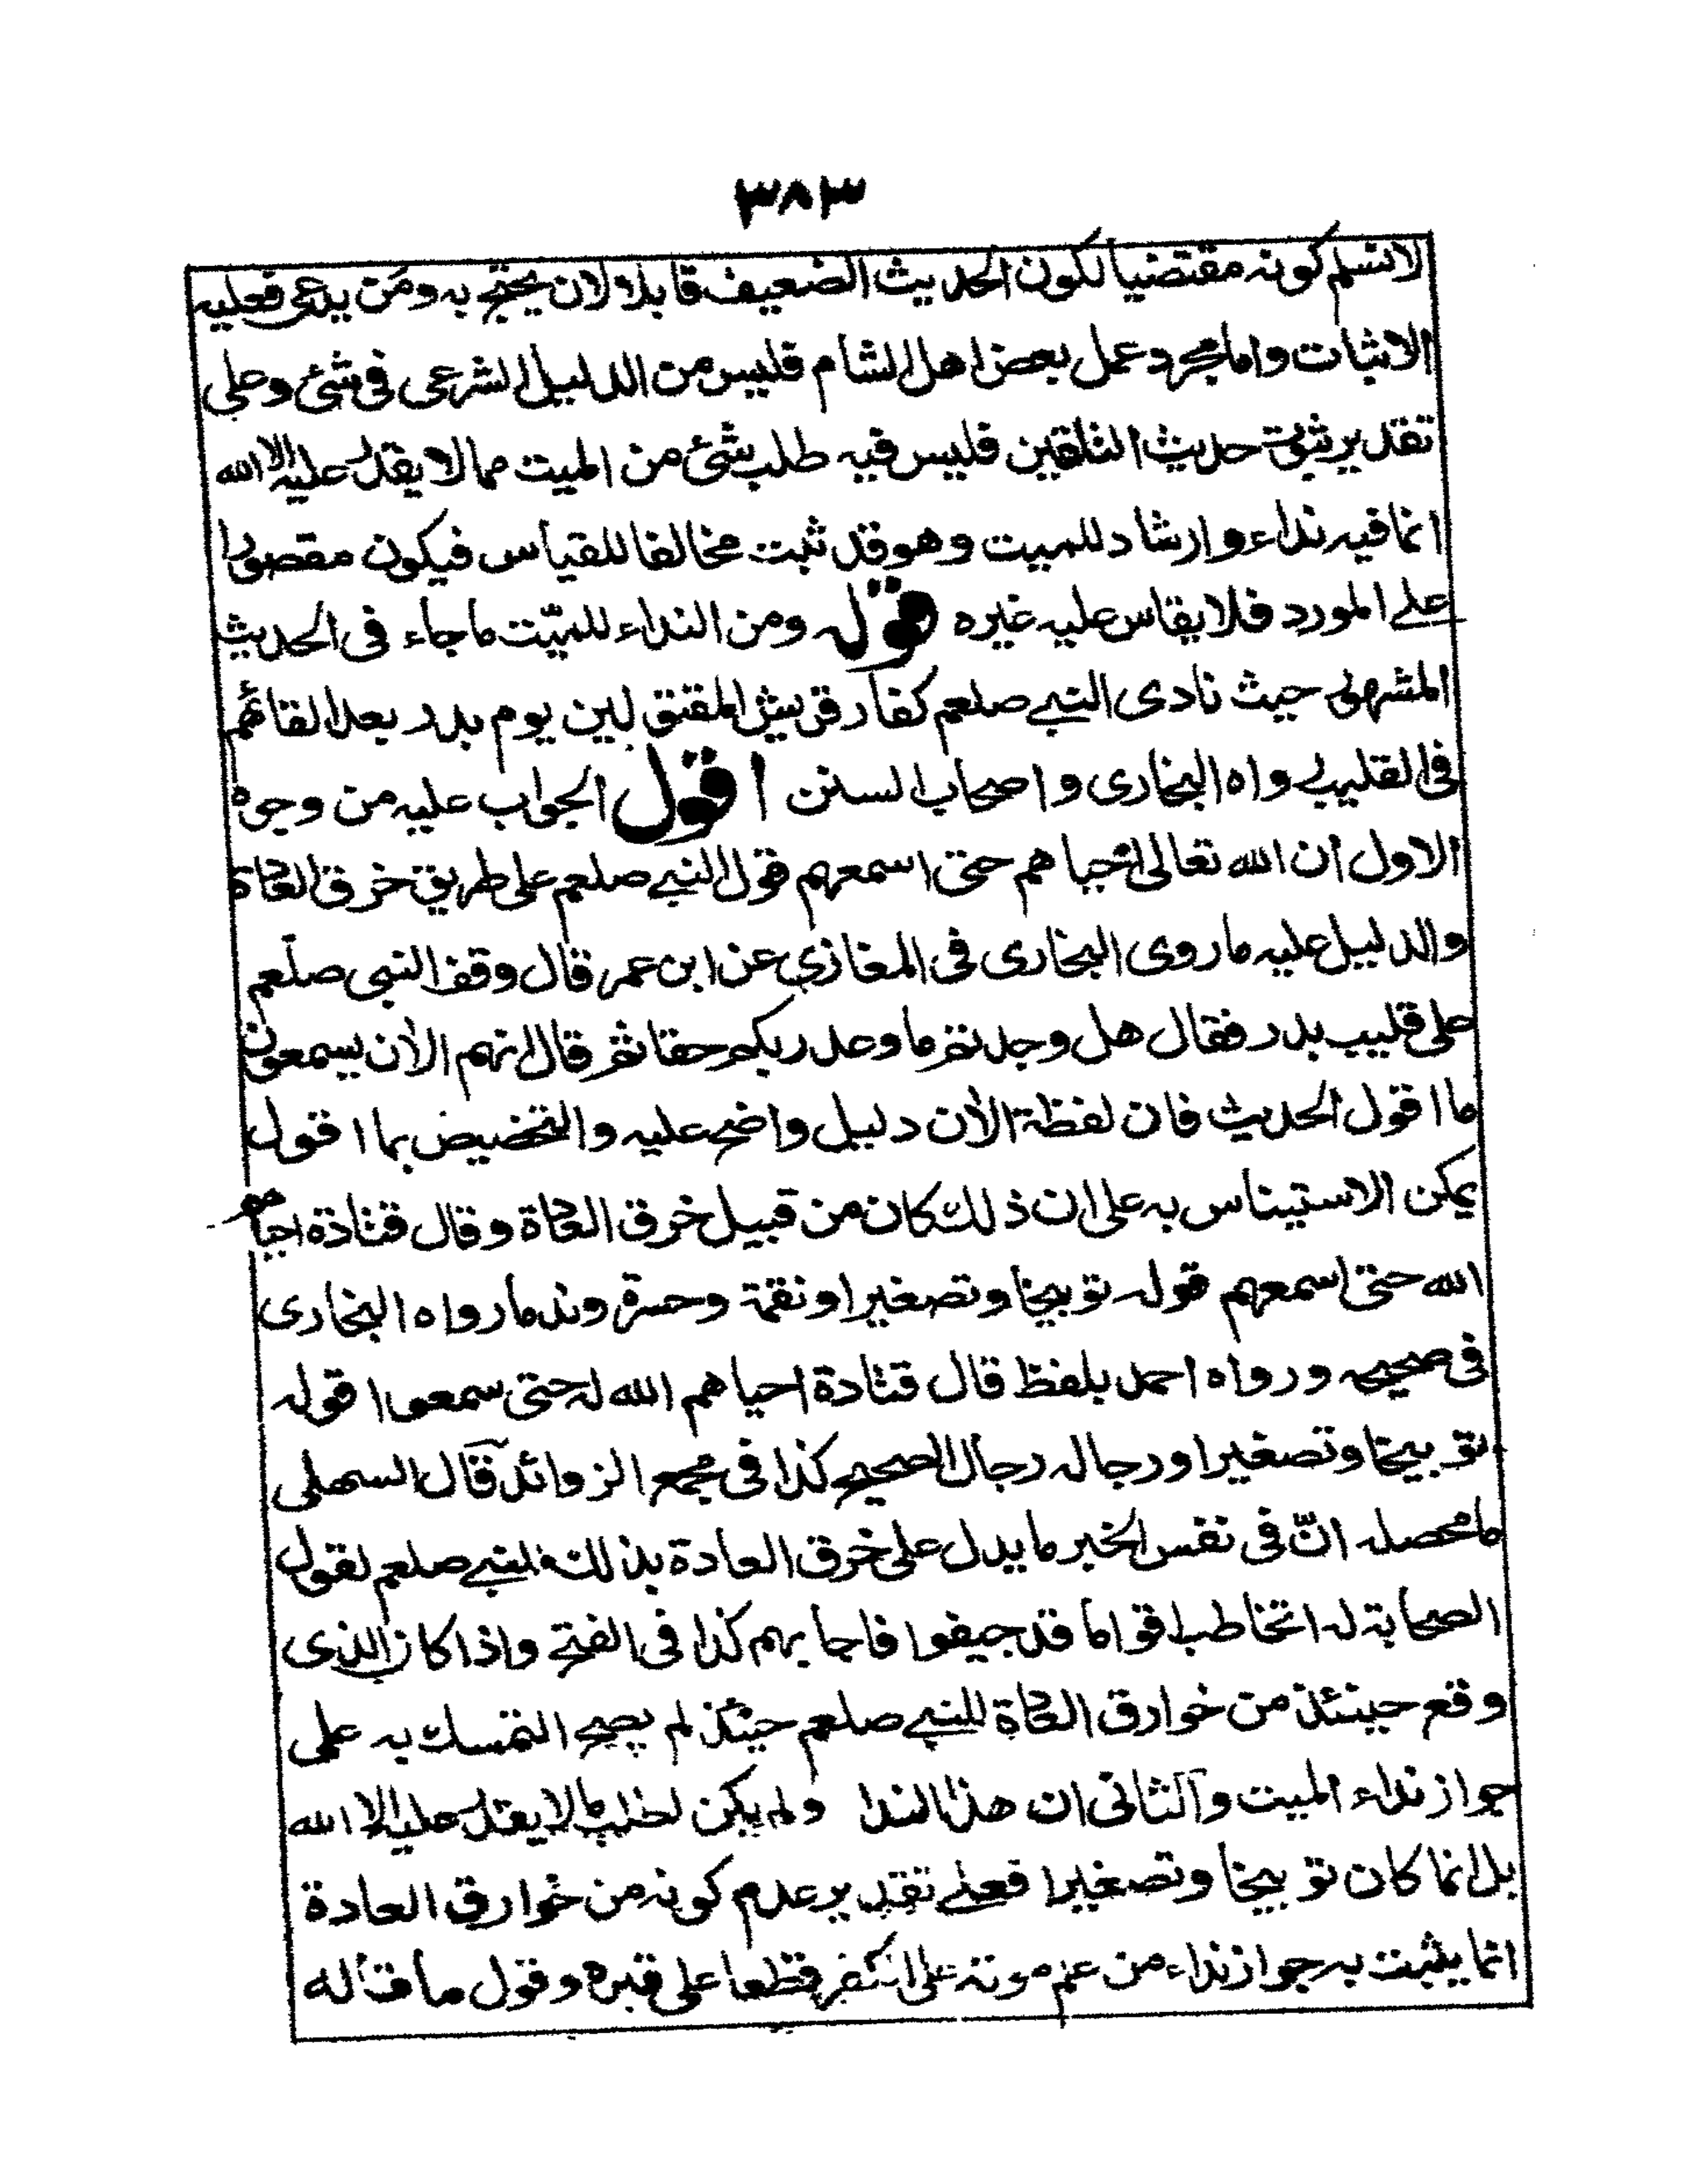 ٣٨٣
لا نسلم كونه مقتضيا لكون الحديث الضعيف قابلا لان يحتج به ومن يدعى فعليه
الاثبات واما مجرد عمل بعض اهل الشام فليس من الدليل الشرعى فى شئ وعلى
تقدير ثبوت حديث التلقين فليس فيه طلب شئ من الميت مما لا يقدر عليه الا الله
انما فيه نداء وارشاد للميت وهو قد ثبت مخالفا للقياس فيكون مقصورا
على المورد فلا يقاس عليه غيره قوله ومن النداء للميّت ما جاء فى الحديث
المشهور حيث نادى النبي صلعم كفار قريش المقتولين يوم بدر بعد القائهم
فى القليب رواه البخارى واصحاب السنن اقول الجواب عليه من وجوه
الاول ان الله تعالى احياهم حتى اسمعهم قول النبي صلعم على طريق خرق العادة
والدليل عليه ما روى البخارى فى المغازي عن ابن عمر قال وقف النبى صلعم
على قليب بدر فقال هل وجدتم ما وعد ربكم حقا ثم قال انهم الآن يسمعون
ما اقول الحديث فان لفظة الآن دليل واضح عليه والتخصيص بما اقول
يمكن الاستيناس به على ان ذلك كان من قبيل خرق العادة وقال قتادة احياهم
الله حتى اسمعهم قوله توبيخا وتصغيرا ونقمة وحسرة وندما رواه البخارى
فى صحيحه ورواه احمد بلفظ قال قتادة احياهم الله له حتى سمعوا قوله
توبيخا وتصغيرا ورجاله رجال الصحيح كذا فى مجمع الزوائد قال السهلى
ما محصله انّ فى نفس الخبر ما يدل على خرق العادة بذلك للنبي صلعم لقول
الصحابة له اتخاطب اقواما قد جيفوا فاجابهم كذا فى الفتح واذا كان الذى
وقع حينئذ من خوارق العادة للنبي صلعم حينئذ لم يصح التمسك به على
جواز نداء الميت والثانى ان هذا الندا ولم يكن لطلب ما لا يقدر عليه الا الله
بل انما كان توبيخا وتصغيرا فعلى تقدير عدم كونه من خوارق العادة
انما يثبت به جواز نداء من علم موته على الكفر قطعا على قبره وقول ما قاله